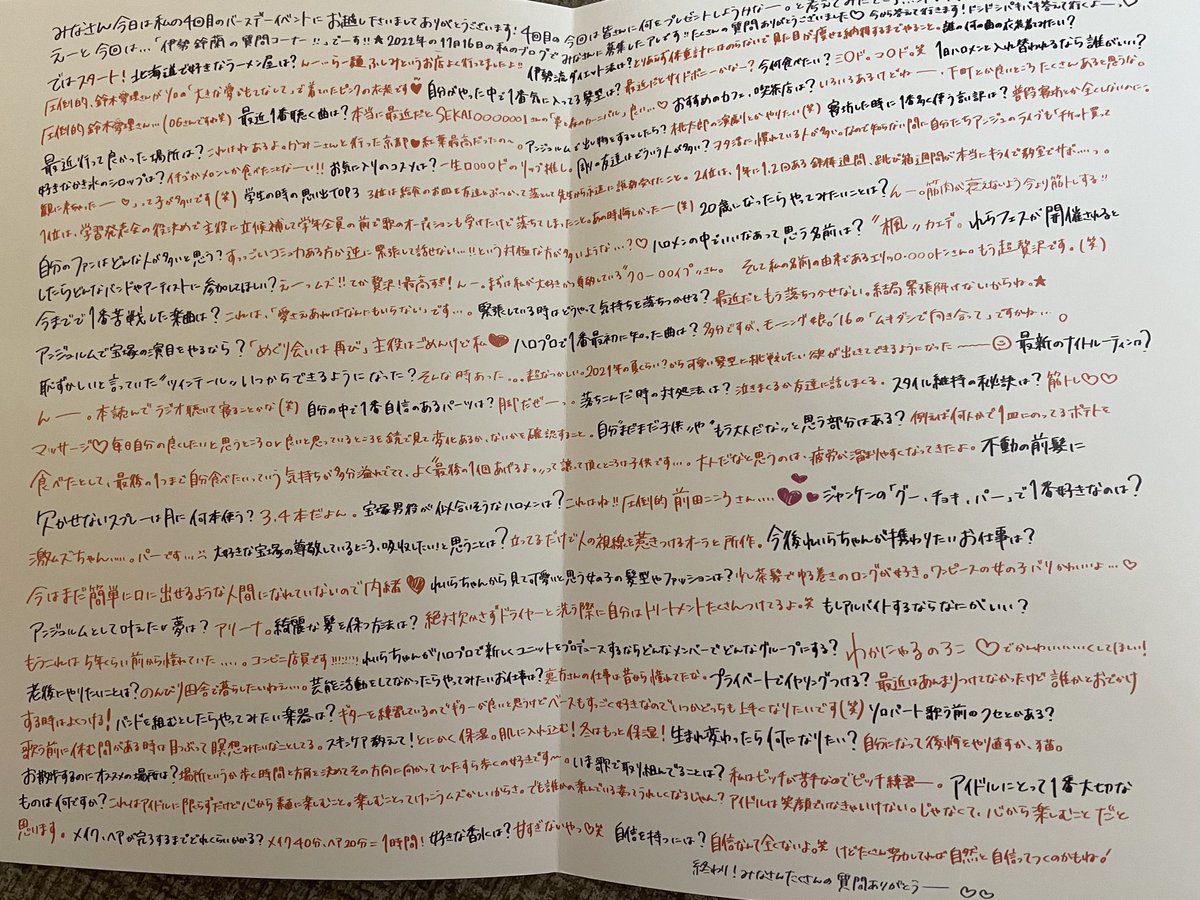 みなさん今日は私の4回目のバースデーイベントにお越しくださいましてありがとうございます！4回目の今回は皆さんに何をプレゼントしようかなーと考えて
えーと今回は…「伊勢鈴蘭の質問コーナー!!」でーす!!★2022年の11月16日の私のブログでみなさんに募集したアレです!!たくさんの質問ありがとうございました♡今から答えて行きます！ドンドンバキバキ答えて行くよー
ではスタート！北海道で好きなラーメン屋は？んーらー麺ふしみというお店よく行ってましたよ!!伊勢流ダイエット法は？とりあえず体重計にはのらないで見た目が痩せと納得するまでやること。誰の何の曲の衣装着みたい？
圧倒的、鈴木愛理さんがソロの「大きな愛でもてなして」で着いたピンクの衣装です♥自分がやった中で1番気に入ってる髪型は？最近だとサイドポニーかなー？今何食べたい？ミ〇ド。コ〇ド。笑 1日ハロメンと入れ替われるなら誰がいい？
圧倒的鈴木愛理さん…(OGさんですね笑)最近1番聴く曲は？本当に最近だとSEKAI〇〇〇〇〇〇〇Iさんの「炎と森のカーニバル」良い…♡おすすめのカフェ、喫茶店は？いろいろあるけどねーー、下町とか良いところたくさんあると思うな。
最近行って良かった場所は？これはねあるよ。かみこさんと行った京都♥紅葉最高だったの〜。アンジュルムで出し物をするとしたら？桃太郎の演劇とかやりたい(笑)寝坊した時に1番多く使う言訳は？普段寝坊とか全くしないなのに。
好きなかき氷のシロップは？イチゴかメロンとか食べたことなーい!!お気に入りのコスメは？一生ロ〇〇〇ドのリップ推し。剛の友達はどういう人が多い？ヲタ活に慣れている人が多い。なので知らない間に自分たちアンジュのライブもチケット買って
観に来ちゃったー♡」って子が多いです(笑)学生の時の思出TOP3 3位は給食のお皿を友達とぶつかって落として先生から永遠に説教食ったこと。2位は、1年に1、2回ある鉄棒週間、跳び箱週間が本当にキライで教室でサボ…っ。
1位は、学習発表会の役決めで主役に立候補して学年全員の前で歌のオーディションも受けたけど落ちてしまったこと。あの時悔しかったー(笑)20歳になったらやってみたいことは？んー。筋肉が衰えないよう今より筋トレする!!
自分のファンはどんな人が多いと思う？すっごいコミュ力ある方か逆に緊張して話せない…!!という対極な方が多いような…？♡ハロメンの中でいいなあって思う名前は？〝楓〟カエデ。れらフェスが開催されると
したらどんなバンドやアーティストに参加してほしい？えーっムズ!!てか贅沢！最高すぎ！んー。まずは私が大好きかつ尊敬している〝クローOOイプ〟さん。 そして私の名前の由来であるエリッ〇・〇〇〇トンさん。もう超贅沢です。(笑)
今までで1番苦戦した楽曲は？これは、「愛さえあればなんにもいらない」です…。緊張している時はどうやって気持ちを落ちつかせる？最近だともう落ちつかせない。結局緊張解けないからね。★
アンジュルムで宝塚の演目をやるなら？「めぐり会いは再び」主役はごめんけど私♥ハロプロで1番最初に知った曲は？多分ですが、モーニング娘。'16の「ムキダシで向き合って」ですかね…。
恥ずかしいと言っていた〝ツインテール〟いつからできるようになった？そんな時あった。。。超なつかしい。2021年の夏くらい？から可愛い髪型に挑戦したい欲が出てきてできるようになったーー 最新のナイトルーティンは？
んー。本読んでラジオ聴いて寝ることかな(笑)自分の中で1番自信のあるパーツは？脚だぜーっ。落ちこんだ時の対処法は？泣きまくるか友達に話しまくる。スタイル維持の秘訣は？筋トレ♡♡
マッサージ♡毎日自分の良くしたいと思うところor良いと思っているところを鏡で見て変化あるか、ないかを確認すること。自分〝まだまだ子供〟や〝もう大人だな〟と思う部分はある？例えば何人かで1皿にのってるポテトを
食べたとして、最後の1つまで自分食べたいっていう気持ちが多分溢れてて、よく〝最後の1個あげるよ。〟って譲って頂くところは子供です…。大人だなと思うのは、疲労が溜まりやすくなってきたよ。不動の前髪に
欠かせないスプレーは月に何本使う？3、4本だよん。宝塚男役が似合いそうなハロメンは？これはね!!圧倒的前田こころさん…♥ジャンケンの「グー、チョキ、パー」で1番好きなのは？
激ムズちゃん…。パーです…。大好きな宝塚の尊敬しているところ、吸収したい！と思うことは？立ってるだけで人の視線を惹きつけるオーラと所作。今後れいらちゃんが携わりたいお仕事は？
今はまだ簡単に口に出せるような人間になれていないので内緒♥れいらちゃんから見て可愛いと思う女の子の髪型やファッションは？れし茶髪でゆる巻きのロングが好き。ワンピースの女の子バリかわいいよ…♡
アンジュルムとして叶えたい夢は？アリーナ。綺麗な髪を保つ方法は？絶対欠かさずドライヤーと洗う際に自分はトリートメントたくさんつけてるよ。笑 もしアルバイトするならなにがいい？
もうこれは5年くらい前から憧れていた…。コンビニ店員です!!!!!!!れいらちゃんがハロプロで新しくユニットをプロデュースするならどんなメンバーでどんなグループにする？わかにゃるのろこ♡でかんわいいいくしてほしい！
老後にやりたいことは？のんびり田舎で暮らしたいねえ…。芸能活動をしてなかったらやってみたいお仕事は？裏方さんの仕事は昔から憧れてたな。プライベートでイヤリングつける？最近はあんまりつけてなかったけど誰かとおでかけ
する時はよくつける！バンドを組むとしたらやってみたい楽器は？ギターを練習しているのでギターが良いと思うけどベースもすっごく好きなのでいつかどっちも上手くなりたいです(笑)ソロパート歌う前のクセとかある？
歌う前に休む間がある時は目つぶって瞑想みたいなことしてる。スキンケア教えて！とにかく保湿。肌に入れ込む！冬はもっと保湿！生まれ変わったら何になりたい？自分になって後悔をやり直すか、猫。
お散歩するのにオススメの場所は？場所というか歩く時間と方角を決めてその方向に向かってひたすら歩くの好きです〜。いま歌で取り組んでることは？私はピッチが苦手なのでピッチ練習ー。アイドルにとって1番大切な
ものは何ですか？これはアイドルに限らずだけど心から素直に楽しむこと。楽しむことってけっこうムズかしいからさ。でも誰かの楽んでいる姿ってうれしくなるじゃん？アイドルは笑顔でいなきゃいけない。じゃなくて、心から楽しむことだと
思います。メイク、ヘアが完了するまでどれくらいかかる？メイク40分、ヘア20分＝1時間！好きな香水は？甘すぎないやつ♡笑 自信を持つには？自信なんて全くないよ。笑 けどたくさん努力してれば自然と自信ってつくのかもね！
終わり！みなさんたくさんの質問ありがとうーー♡♡